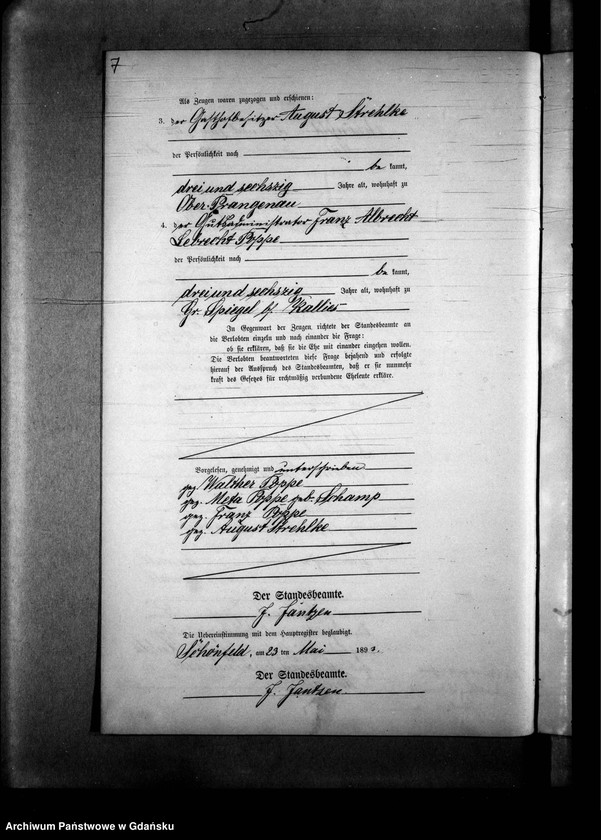 7
Als Zeugen waren zugezogen und erschienen:
3. der Gasthofbesitzer August Strehlke
der Persönlichkeit nach
be kannt,
drei und sechszig Jahre alt, wohnhaft zu
Ober Prangenau
4. der Gutsadministrator Franz Albrecht
Lebrecht Poppe
der Persönlichkeit nach
be kannt,
drei und sechszig Jahre alt, wohnhaft zu
Gr. Spiegel b/ Kallies
In Gegenwart der Zeugen richtete der Standesbeamte an
die Verlobten einzeln und nach einander die Frage:
ob sie erklären, daß sie die Ehe mit einander eingehen wollen.
Die Verlobten beantworteten diese Frage bejahend und erfolgte
hierauf der Ausspruch des Standesbeamten, daß er sie nunmehr
kraft des Gesetzes für rechtmäßig verbundene Eheleute erkläre.
Vorgelesen, genehmigt und unterschrieben
gez. Walther Poppe
gez. Meta Poppe geb. Schamp
gez. Franz Poppe
gez. August Strehlke
Der Standesbeamte.
J. Jantzen
Die Uebereinstimmung mit dem Hauptregister beglaubigt.
Schönfeld, am 23 ten Mai 189
Der Standesbeamte.
J. Jantzen
Archiwum Państwowe w Gdańsku